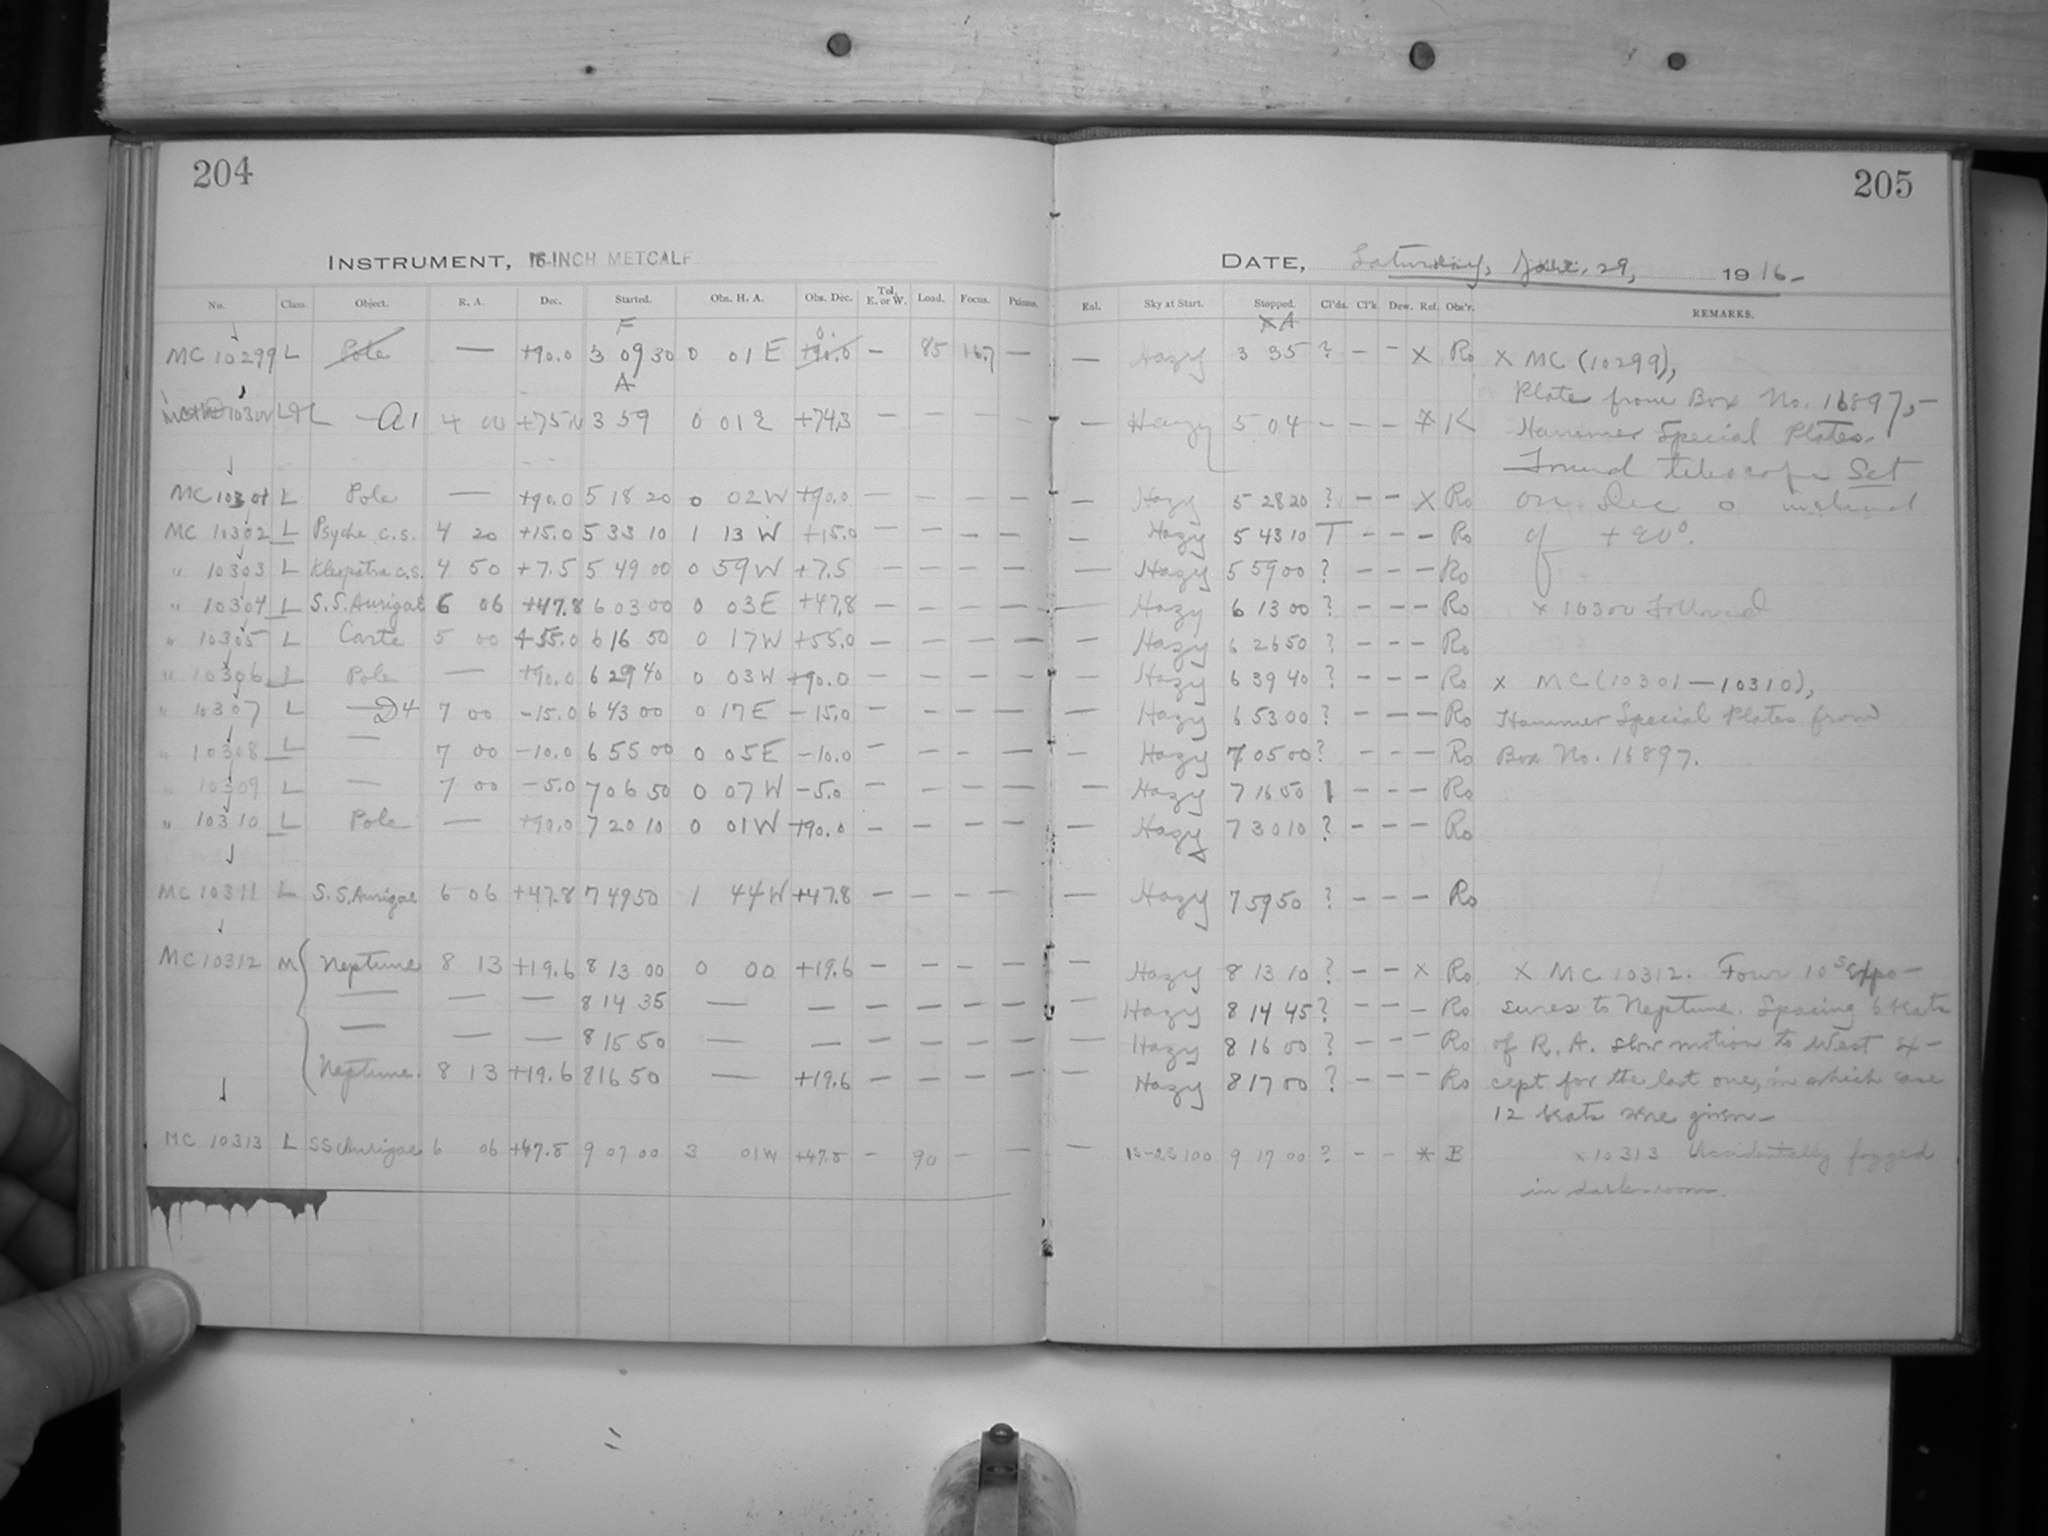 204
205
INSTRUMENT, 16-INCH METCALF
DATE, Saturday, Jan. 29, 1916-
No. Class. Object. R. A. Dec. Started. Obs. H. A. Obs. Dec. Tel. E. or W. Load. Focus. Prisms. Enl. Sky at Start. Stopped. Cl'ds. Cl'k. Dew. Ref. Obs'r. REMARKS.
F O. X A
MC 10299 L Pole — +90.0 3 09 30 0 01 E +90.0 – 85 16.7 — — Hazy 3 35 ? – – X Ro X MC (10299),
A
Plate from Box No. 16897,—
10300 L — A1 4 00 +75 3 59 0 01 E +74.3 – – – – — Hazy 5 04 – – – X K Hammer Special Plates.
Found telescope Set
MC 10301 L Pole — +90.0 5 18 20 0 02 W +90.0 – – – – — Hazy 5 28 20 ? – – X Ro on Dec 0 instead
MC 10302 L Psyche c.s. 4 20 +15.0 5 33 10 1 13 W +15.0 – – – – — Hazy 5 43 10 T – – – Ro of +90°.
" 10303 L Kleopatra c.s. 4 50 +7.5 5 49 00 0 59 W +7.5 – – – – — Hazy 5 59 00 ? – – – Ro
" 10304 L S.S. Aurigae 6 06 +47.8 6 03 00 0 03 E +47.8 – – – – — Hazy 6 13 00 ? – – – Ro x 10300 Followed
" 10305 L Carte 5 00 +55.0 6 16 50 0 17 W +55.0 – – – – — Hazy 6 26 50 ? – – – Ro
" 10306 L Pole — +90.0 6 29 40 0 03 W +90.0 – – – – — Hazy 6 39 40 ? – – – Ro x MC (10301—10310),
" 10307 L — D4 7 00 -15.0 6 43 00 0 17 E -15.0 – – – – — Hazy 6 53 00 ? – – – Ro Hammer Special Plates from
" 10308 L — 7 00 -10.0 6 55 00 0 05 E -10.0 – – – – — Hazy 7 05 00 ? – – – Ro Box No. 16897.
" 10309 L — 7 00 -5.0 7 06 50 0 07 W -5.0 – – – – — Hazy 7 16 50 1 – – – Ro
" 10310 L Pole — +90.0 7 20 10 0 01 W +90.0 – – – – — Hazy 7 30 10 ? – – – Ro
MC 10311 L S.S. Aurigae 6 06 +47.8 7 49 50 1 44 W +47.8 – – – – — Hazy 7 59 50 ? – – – Ro
MC 10312 M Neptune 8 13 +19.6 8 13 00 0 00 +19.6 – – – – — Hazy 8 13 10 ? – – X Ro X MC 10312. Four 10s Expo-
— — — 8 14 35 — — – – – – — Hazy 8 14 45 ? – – – Ro sures to Neptune. Spacing 6 beats
— — — 8 15 50 — — – – – – — Hazy 8 16 00 ? – – – Ro of R. A. slow motion to West ex-
Neptune. 8 13 +19.6 8 16 50 — +19.6 – – – – — Hazy 8 17 00 ? – – – Ro cept for the last one, in which case
12 beats were given—
MC 10313 L SS Aurigae 6 06 +47.8 9 07 00 3 01 W +47.8 – 90 – – — 15-25 100 9 17 00 ? – – X B x 10313 Accidentally fogged
in dark-room.